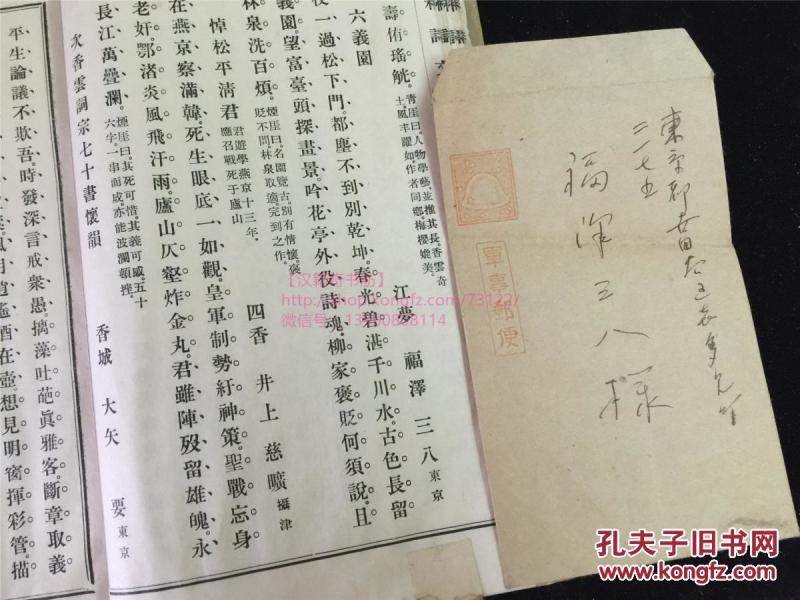 壽侑瑤觥。青厓曰。人物學藝。並推其長。香雲奇
士。風丰躍如。作者同鄉。梅櫻媲美。
六義園
江夢 福澤 三八 東京
一過松下門。都塵不到別乾坤。春光碧湛千川水。古色長留
義園。望富臺頭探畫景。吟花亭外役詩魂。柳家褒貶何須說。且
林泉洗百煩。煙厓曰。名園覽古。別有情懷。褒
貶不問。林泉取適。完到之作。
悼松平清君 君遊學燕京十三年。
應召戰死于廬山
四香 井上 慈曠 攝津
在燕京察滿韓。死生眼底一如觀。皇軍制勢紆神策。聖戰忘身
老奸。鄂渚炎風飛汗雨。廬山仄壑炸金丸。君雖陣歿留雄魄。永
長江萬疊瀾。煙厓曰。其死可惜。其義可感。五十
六字。一串而成。亦能波瀾頓挫。
次香雲詞宗七十書懷韻
香城 大矢 要 東京
平生論議不欺吾。時發深言戒衆愚。摛藻吐葩眞雅客。斷章取義
月逍遙酒在壺。想見明窗揮彩管。描
東京都
三一七五
福澤三八様
軍事郵便
【汉籍奇书坊】
http://shop.kongfz.com/73122/
孔夫子旧书网
www.kongfz.com